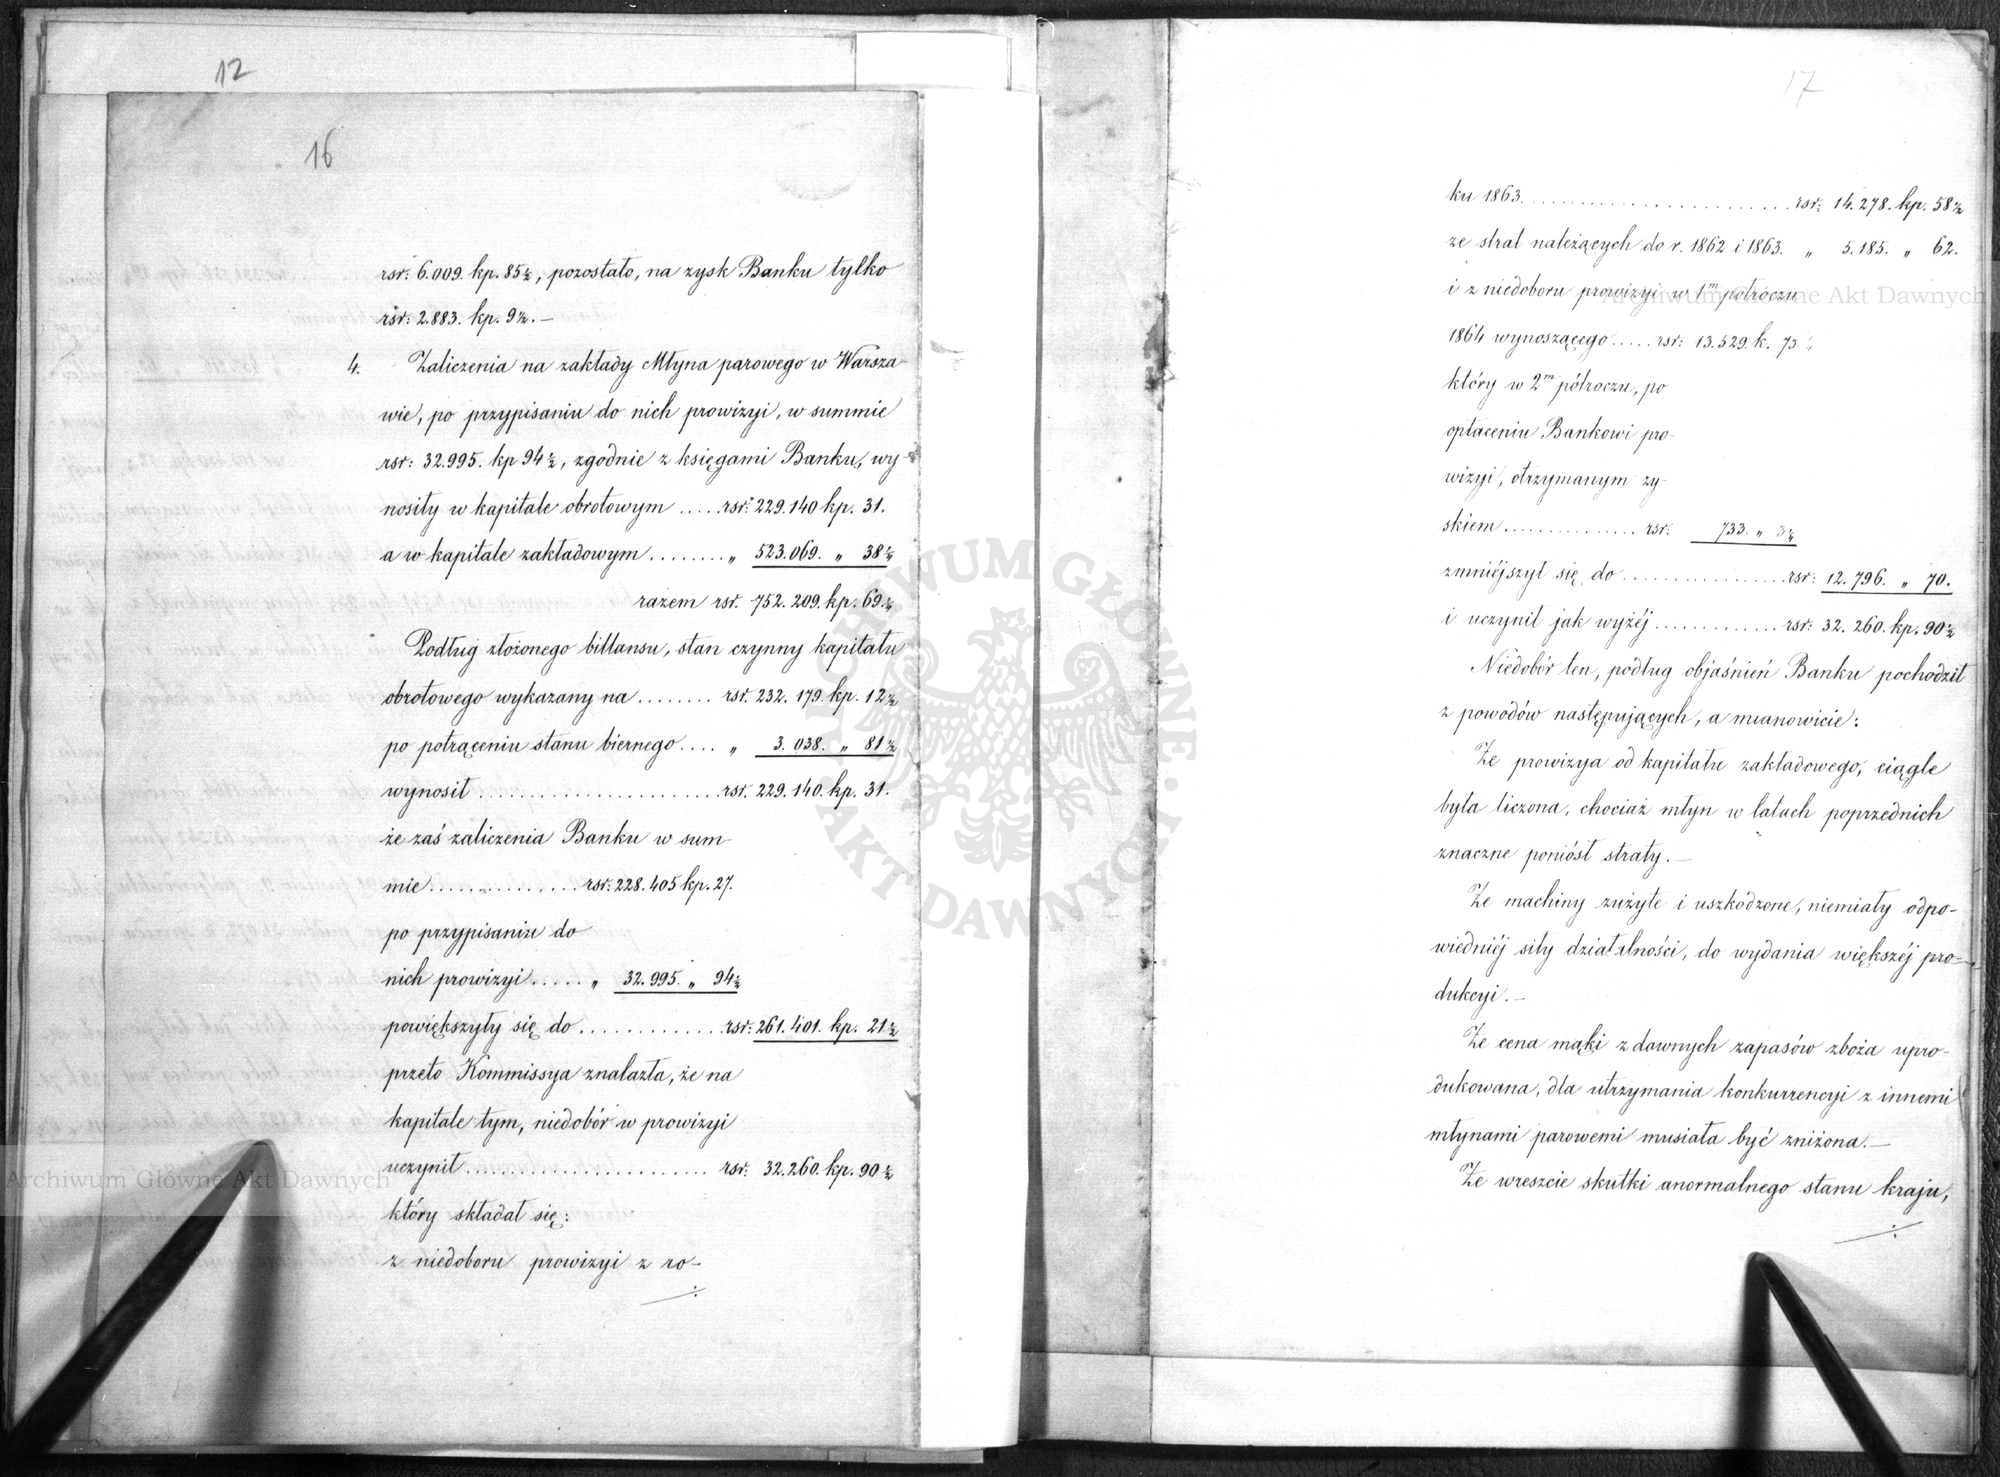 12
16
rsr: 6.009. kp. 85½, pozostało, na zysk Banku tylko
rsr: 2.883. kp. 9½. —
4. Zaliczenia na zakłady Młyna parowego w Warsza-
wie, po przypisaniu do nich prowizyi, w summie
rsr: 32.995. kp 94½, zgodnie z księgami Banku, wy-
nosiły w kapitale obrotowym ..... rsr: 229.140 kp. 31.
a w kapitale zakładowym ........ „ 523.069. „ 38½
razem rsr. 752.209. kp. 69½
Podług złożonego billansu, stan czynny kapitału
obrotowego wykazany na ........ rsr. 232.179. kp. 12½
po potrąceniu stanu biernego .... „ 3.038. „ 81½
wynosił ........................ rsr. 229.140. kp. 31.
że zaś zaliczenia Banku w sum-
mie .............. rsr: 228.405 kp. 27.
po przypisaniu do
nich prowizyi ..... „ 32.995. „ 94½
powiększyły się do .............. rsr: 261.401. kp. 21½
przeto Kommissya znalazła, że na
kapitale tym, niedobór w prowizyi
uczynił ........................ rsr: 32.260. kp. 90½
który składał się:
z niedoboru prowizyi z ro-
17
ku 1863 ........................... rsr: 14.278. kp. 58½
ze strat należących do r. 1862 i 1863. „ 5.185. „ 62.
i z niedoboru prowizyi w 1m półroczu
1864 wynoszącego ..... rsr: 13.529. k. 73½
który w 2m półroczu, po
opłaceniu Bankowi pro-
wizyi, otrzymanym zy-
skiem .............. rsr: 733. „ 3½
zmniéjszył się do ................. rsr: 12.796. „ 70.
i uczynił jak wyżéj ............. rsr: 32.260. kp. 90½
Niedobór ten, podług objaśnień Banku pochodził
z powodów następujących, a mianowicie:
Że prowizya od kapitału zakładowego, ciągle
była liczona, chociaż młyn w latach poprzednich
znaczne poniósł straty. —
Że machiny zużyte i uszkodzone, niemiały odpo-
wiedniéj siły działalności, do wydania większéj pro-
dukcyi. —
Że cena mąki z dawnych zapasów zboża upro-
dukowana, dla utrzymania konkurrencyi z innemi
młynami parowemi musiała być zniżona. —
Że wreszcie skutki anormalnego stanu kraju,
Archiwum Główne Akt Dawnych
Archiwum Główne Akt Dawnych
ARCHIWUM GŁÓWNE · AKT DAWNYCH ·